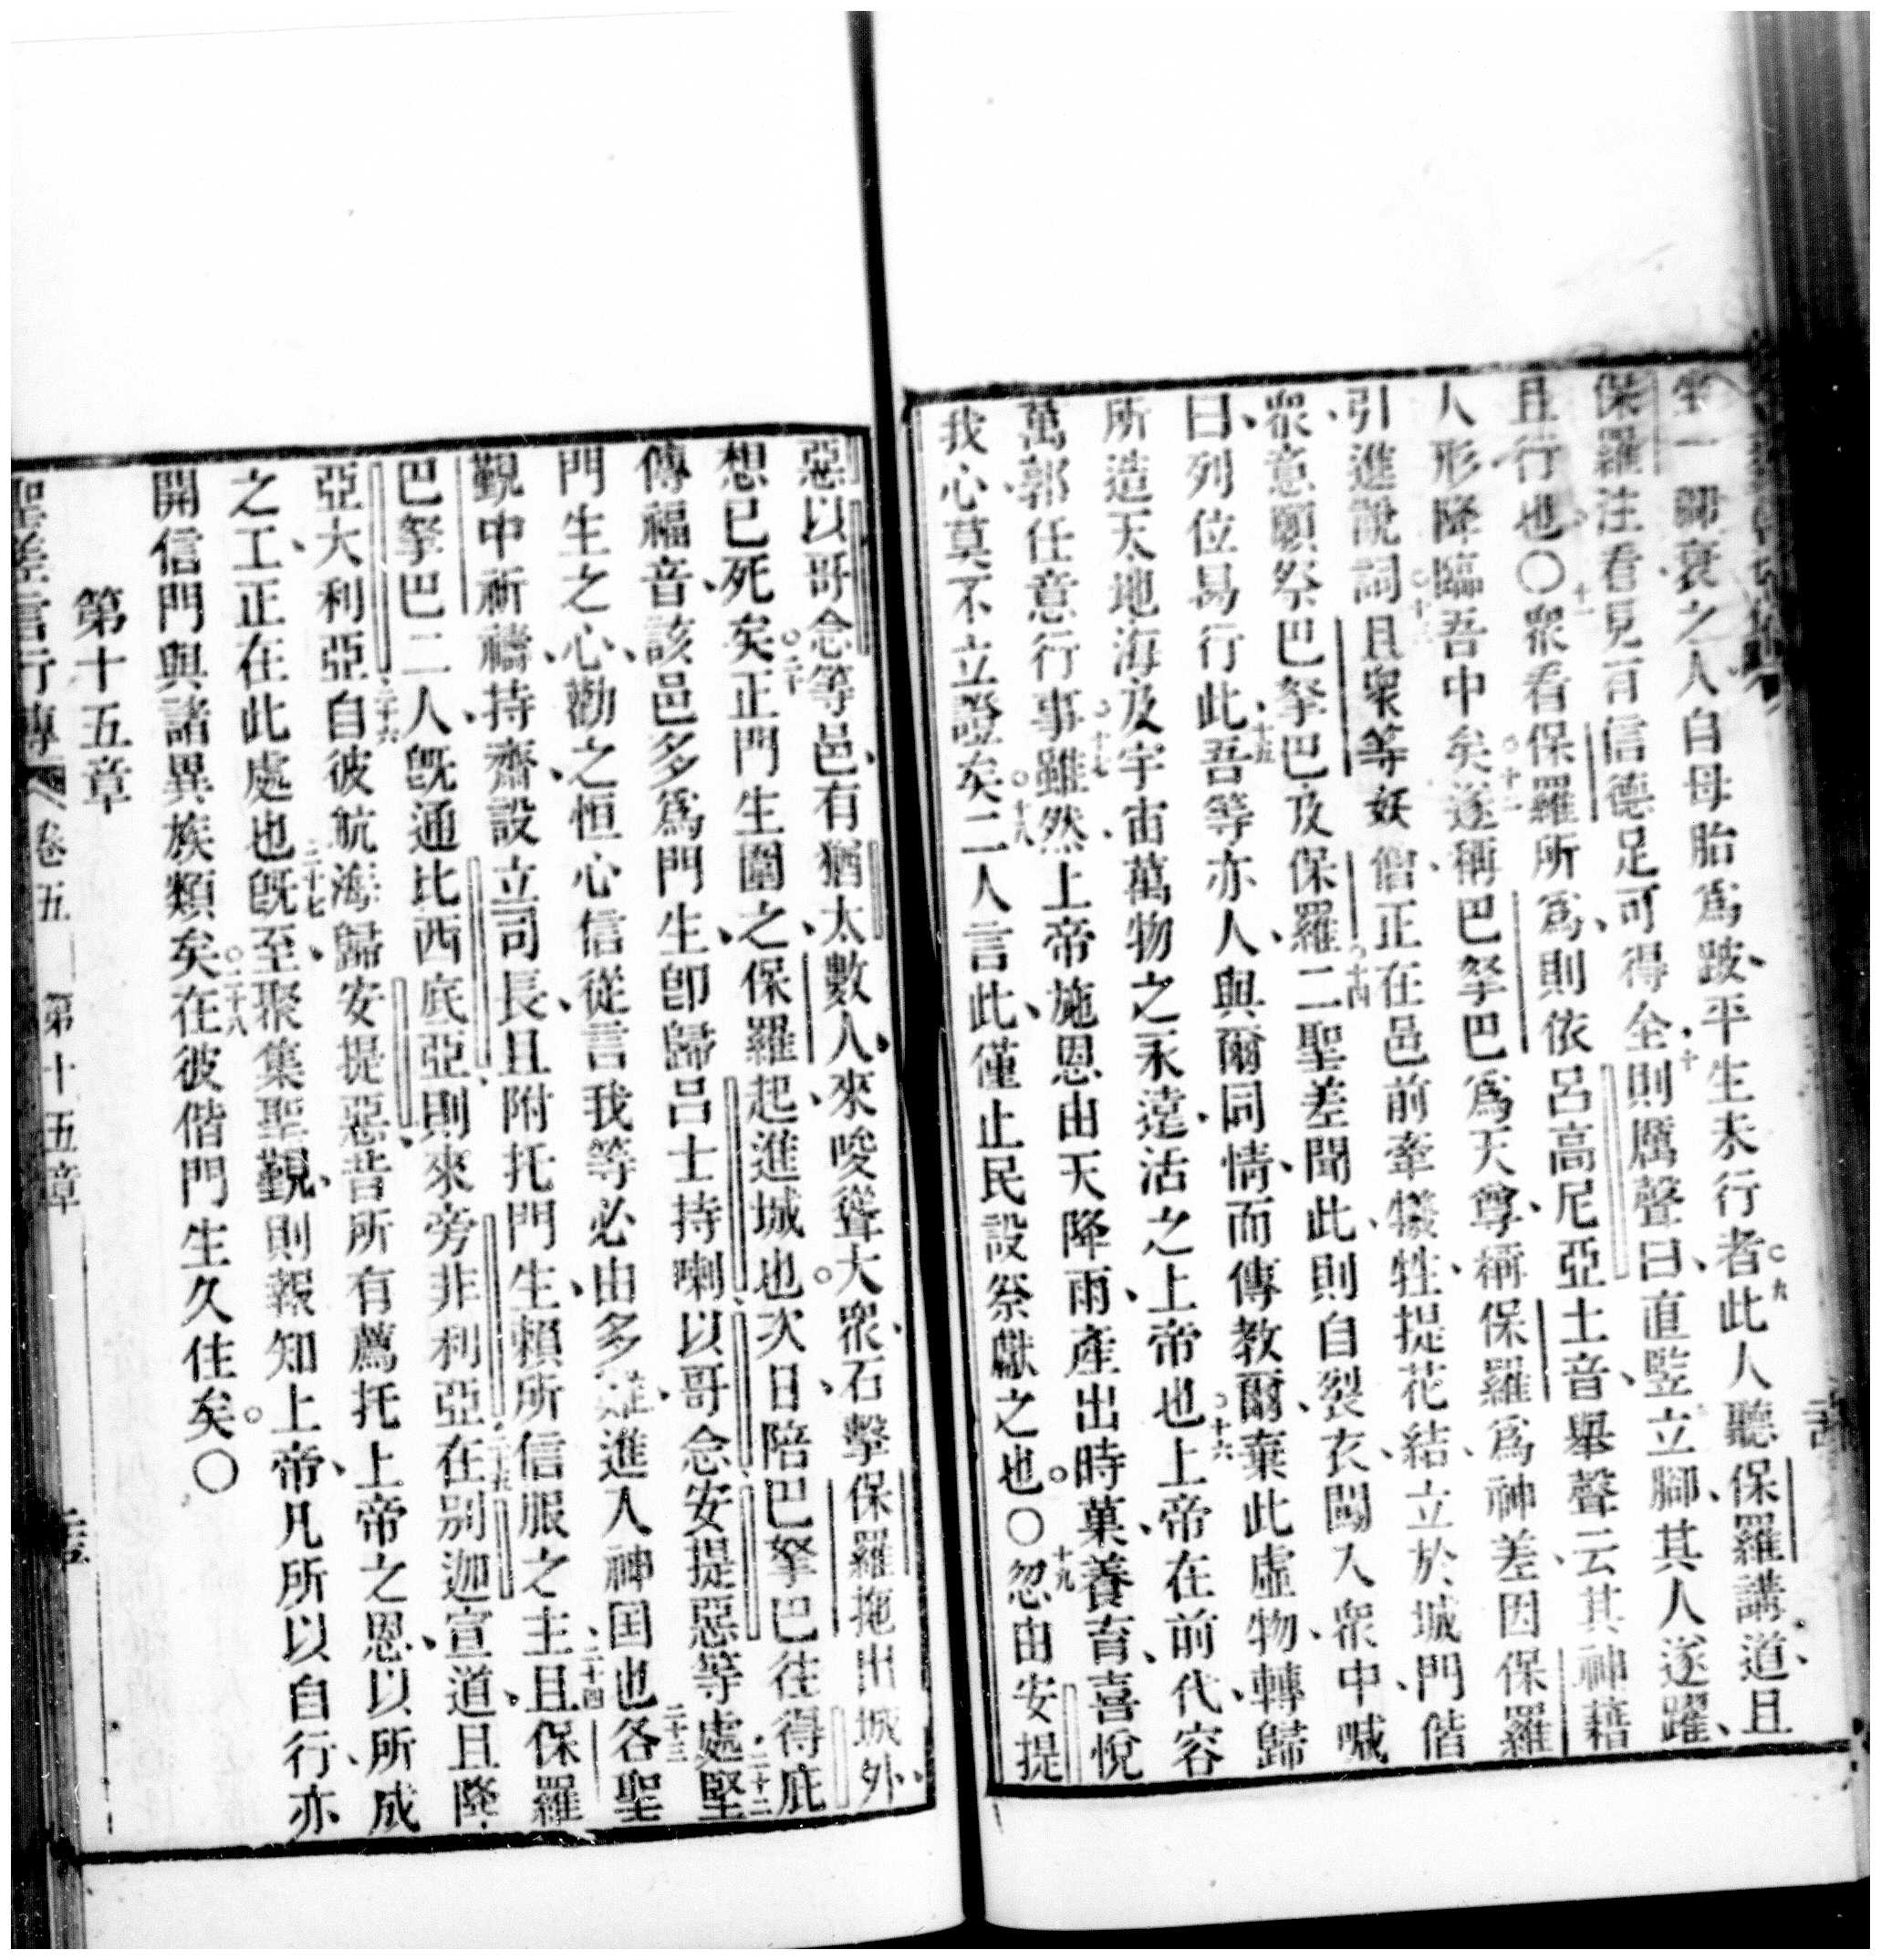 坐一脚衰之人自母胎爲跛平生未行者○九此人聽保羅講道且
保羅注看見有信德足可得全十則厲聲曰直監立腳其人遂躍
且行也○十一衆看保羅所爲則依呂高尼亞土音舉聲云其神藉
人形降臨吾中矣○十二遂稱巴孥巴爲天尊稱保羅爲神差因保羅
引進說詞○十三且衆等妖僧正在邑前牽犧牲提花結立於城門偕
衆意願祭巴孥巴及保羅○十四二聖差聞此則自裂衣闖入衆中喊
曰列位曷行此十五吾等亦人與爾同情而傳教爾棄此虛物轉歸
所造天地海及宇宙萬物之永遠活之上帝也○十六上帝在前代容
萬郭任意行事○十七雖然上帝施恩由天降雨產出時菓養育喜悅
我心莫不立證矣○十八二人言此僅止民設祭獻之也○十九忽由安提
惡以哥念等邑有猶太數人來唆聳大衆石擊保羅拖出城外
想已死矣○二十正門生圍之保羅起進城也次日陪巴孥巴往得庇
二十二傳福音該邑多爲門生卽歸呂士持喇以哥念安提惡等處堅
門生之心勸之恒心信從言我等必由多難進入神国也二十三各聖
覲中祈禱持齋設立司長且附托門生賴所信服之主二十四且保羅
巴孥巴二人旣通比西底亞則來旁非利亞二十五在別迦宣道且降
亞大利亞二十六自彼航海歸安提惡昔所有薦托上帝之恩以所成
之工正在此處也二十七旣至聚集聖覲則報知上帝凡所以自行亦
開信門與諸異族類矣○二十八在彼偕門生久住矣○
第十五章
聖差言行傳 卷五 第十五章